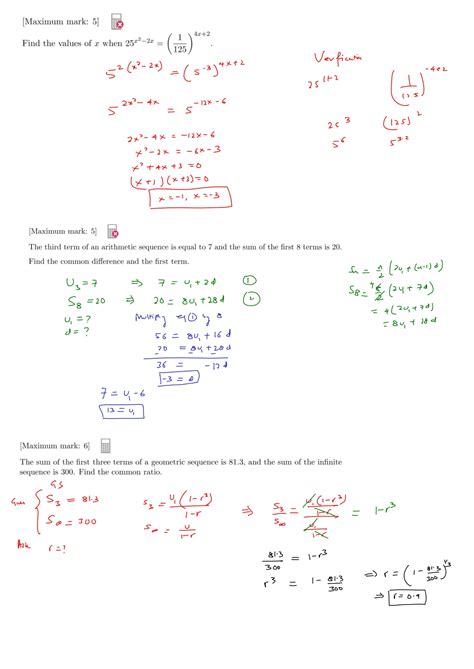 [Maximum mark: 5]
Find the values of x when 25^{x²−2x} = (1/125)^{4x+2}.
5^{2(x²−2x)} = (5^{−3})^{4x+2}
5^{2x²−4x} = 5^{−12x−6}
2x²−4x = −12x−6
x²−2x = −6x−3
x²+4x+3=0
(x+1)(x+3)=0
x=−1, x=−3
25^{1+2} (1/125)^{−4+2}
25³ (125)²
5⁶ 5^{3·2}
[Maximum mark: 5]
The third term of an arithmetic sequence is equal to 7 and the sum of the first 8 terms is 20.
Find the common difference and the first term.
U₃=7 ⇒ 7 = u₁+2d ①
S₈=20 ⇒ 20 = 8u₁+28d ②
u₁=?
d=?
Multiply eq ① by 8
56 = 8u₁+16d
20 = 8u₁+28d
36 = −12d
−3 = d
7 = u₁−6
13 = u₁
Sₙ = n/2 (2u₁+(n−1)d)
S₈ = 8/2 (2u₁+7d)
= 4(2u₁+7d)
= 8u₁+28d
[Maximum mark: 6]
The sum of the first three terms of a geometric sequence is 81.3, and the sum of the infinite
sequence is 300. Find the common ratio.
GS
S₃ = 81.3
S∞ = 300
Ask r=?
S₃ = u₁(1−r³)/1−r
S∞ = u/1−r
⇒ S₃/S∞ = u₁(1−r³)/1−r / u/1−r = 1−r³
81.3/300 = 1−r³
r³ = 1−81.3/300 ⇒ r=(1−81.3/300)^{1/3}
⇒ r=0.9